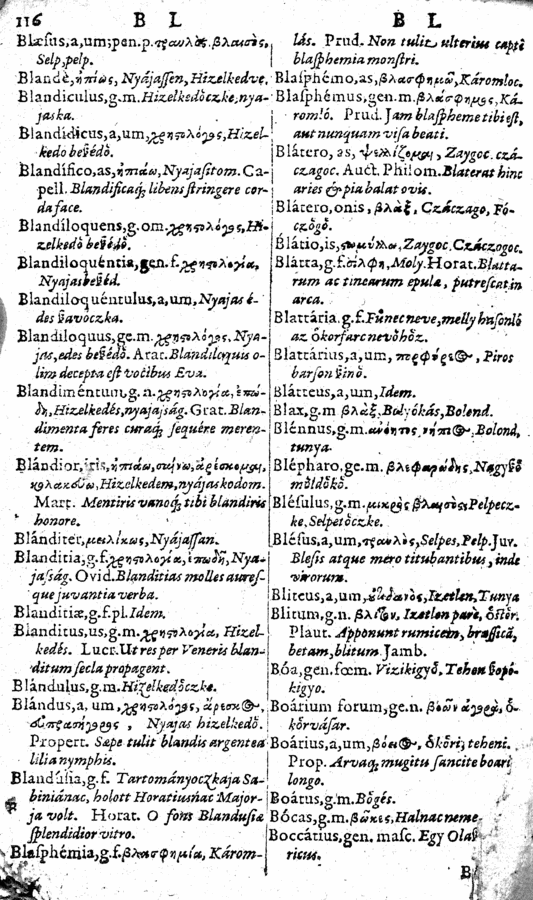 116 B L B L
Blæsus,a,um;pen.p.τραυλὸς.βλαισὸς,
Selp,pelp.
Blandè,ἠπίως, Nyájaſſen, Hizelkedve,
Blandiculus,g.m.Hizelkedȯczke,nya-
jaska.
Blandídicus,a,um,χρηστολόγος,Hizel-
kedo
Blandífico,as,ἠπιάω,Nyajaſitom. Ca-
pell. Blandificaq; libens ſtringere cor-
da face.
Blandíloquens,g.om.χρηστολόγος,Hi-
zelkedȯ
Blandiloquéntia,gen.f.χρηστολογία,
Blandiloquéntulus,a,um,Nyajas é-
des
Blandíloquus,ge.m.χρηστολόγος. Nya-
jas,edes Arat.Blandiloquus o-
lim decepta eſt vocibus Eva.
Blandiméntum,g.n.χρηστολογία,ἐπῳ-
δη,Hizelkedés,nyajajság. Grat.Blan-
dimenta feres curaq; ſequére meren-
tem.
Blándior,íris,ἠπιάω,σαίνω,ἀρέσκομαι,
κολακεύω,Hizelkedem,nyájaskodom.
Mart. Mentiris vanoq; tibi blandiris
honore.
Blánditer,μειλίκως, Nyájaſſan.
Blanditia,g.f.χρηστολογία,ἐπωδὴ,Nya-
jaſság. Ovid.Blanditias molles aureſ-
que juvantia verba.
Blanditiæ,g.f.pl.Idem.
Blanditus,us,g.m.χρηστολογία, Hizel-
kedés. Lucr.Ut res per Veneris blan-
ditum ſecla propagent.
Blándulus,g.m.Hizelkedȯczke.
Blándus,a, um,χρηστολόγος, ἄρεσκος,
Nyajas hizelkedȯ.
Propert. Sæpe tulit blandis argentea
lilia nymphis.
Blandúſia,g.f. Tartományoczkaja Sa-
biniánac, holott Horatiuſnac Major-
ja volt. Horat. O fons Blanduſiæ
ſplendidior vitro.
Blaſphémia,g.f.βλασφημία, Károm-
lás. Prud. Non tulit ulterius capti
blaſphemia monſtri.
Blaſphémo,as,βλασφημῶ, Káromloc.
Blaſphémus,gen.m.βλάσφημος, Ká-
romló. Prud. Jam blaſpheme tibi eſt,
aut nunquam viſa beati.
Blátero, as, ψελλίζομαι, Zaygoc. czá-
czagoc. Auct. Philom.Blaterat hinc
aries & pia balat ovis.
Blátero,onis, βλὰξ, Czáczago, Fó-
czȯgȯ.
Blátio,is,στωμύλλω, Zaygoc. Czáczogoc.
Blátta,g.f.σίλφη, Moly. Horat.Blatta-
rum ac tinearum epulæ, putreſcat in
arca.
Blattária,g.f.Fúnec neve,melly haſonló
az ȯkorfarc nevȯhȯz.
Blattárius,a,um, πορφύρεος, Piros
Blátteus,a,um,Idem.
Blax,g.m βλὰξ, Balyókás, Bolond.
Blénnus,g.m.ἀνόητος, νήπιος, Bolond,
tunya.
Blépharo,ge.m. βλεφαρώδης,
mȯldȯkȯ.
Blésulus,g.m.μικρὸς βλαισὸς,Pelpecz-
ke,Selpetȯczke.
Blésus,a,um,τραυλὸς,Selpes, Pelp.Juv.
Bleſis atque mero titubantibus, inde
virorum.
Bliteus,a,um, οὐτιδανὸς, Izetlen, Tunya
Blitum,g.n. βλίτον, Izetlen paré,
Plaut. Apponunt rumicem, braſſicã,
betam, blitum. Jamb.
Bóa,gen.fœm. Vizikigyȯ, Tehen
kigyo.
Boárium forum,ge.n. βοῶν ἀγορά, ȯ-
kȯrváſar.
Boárius,a,um,βόειος, ȯkȯri, teheni.
Prop. Arvaq; mugitu ſancite boari
longo.
Boátus,g.m.Bȯgés.
Bócas,g.m. βῶκες, Halnac neme.
Boccátius,gen. maſc. Egy Olaſ
ricus.